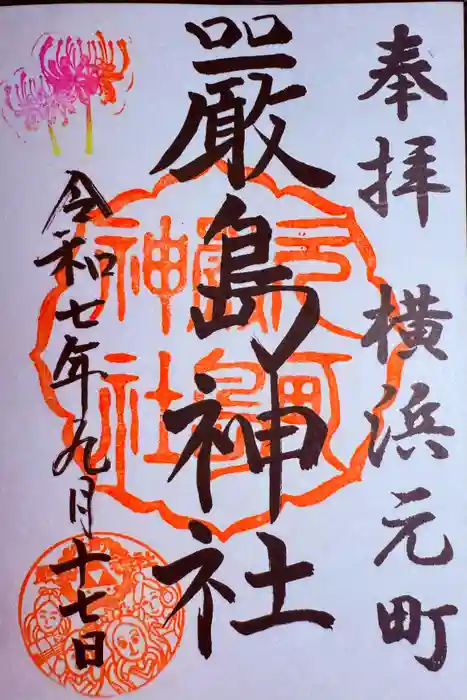 奉拝 横浜元町
厳島神社
令和七年九月十七日
元町
厳島
神社